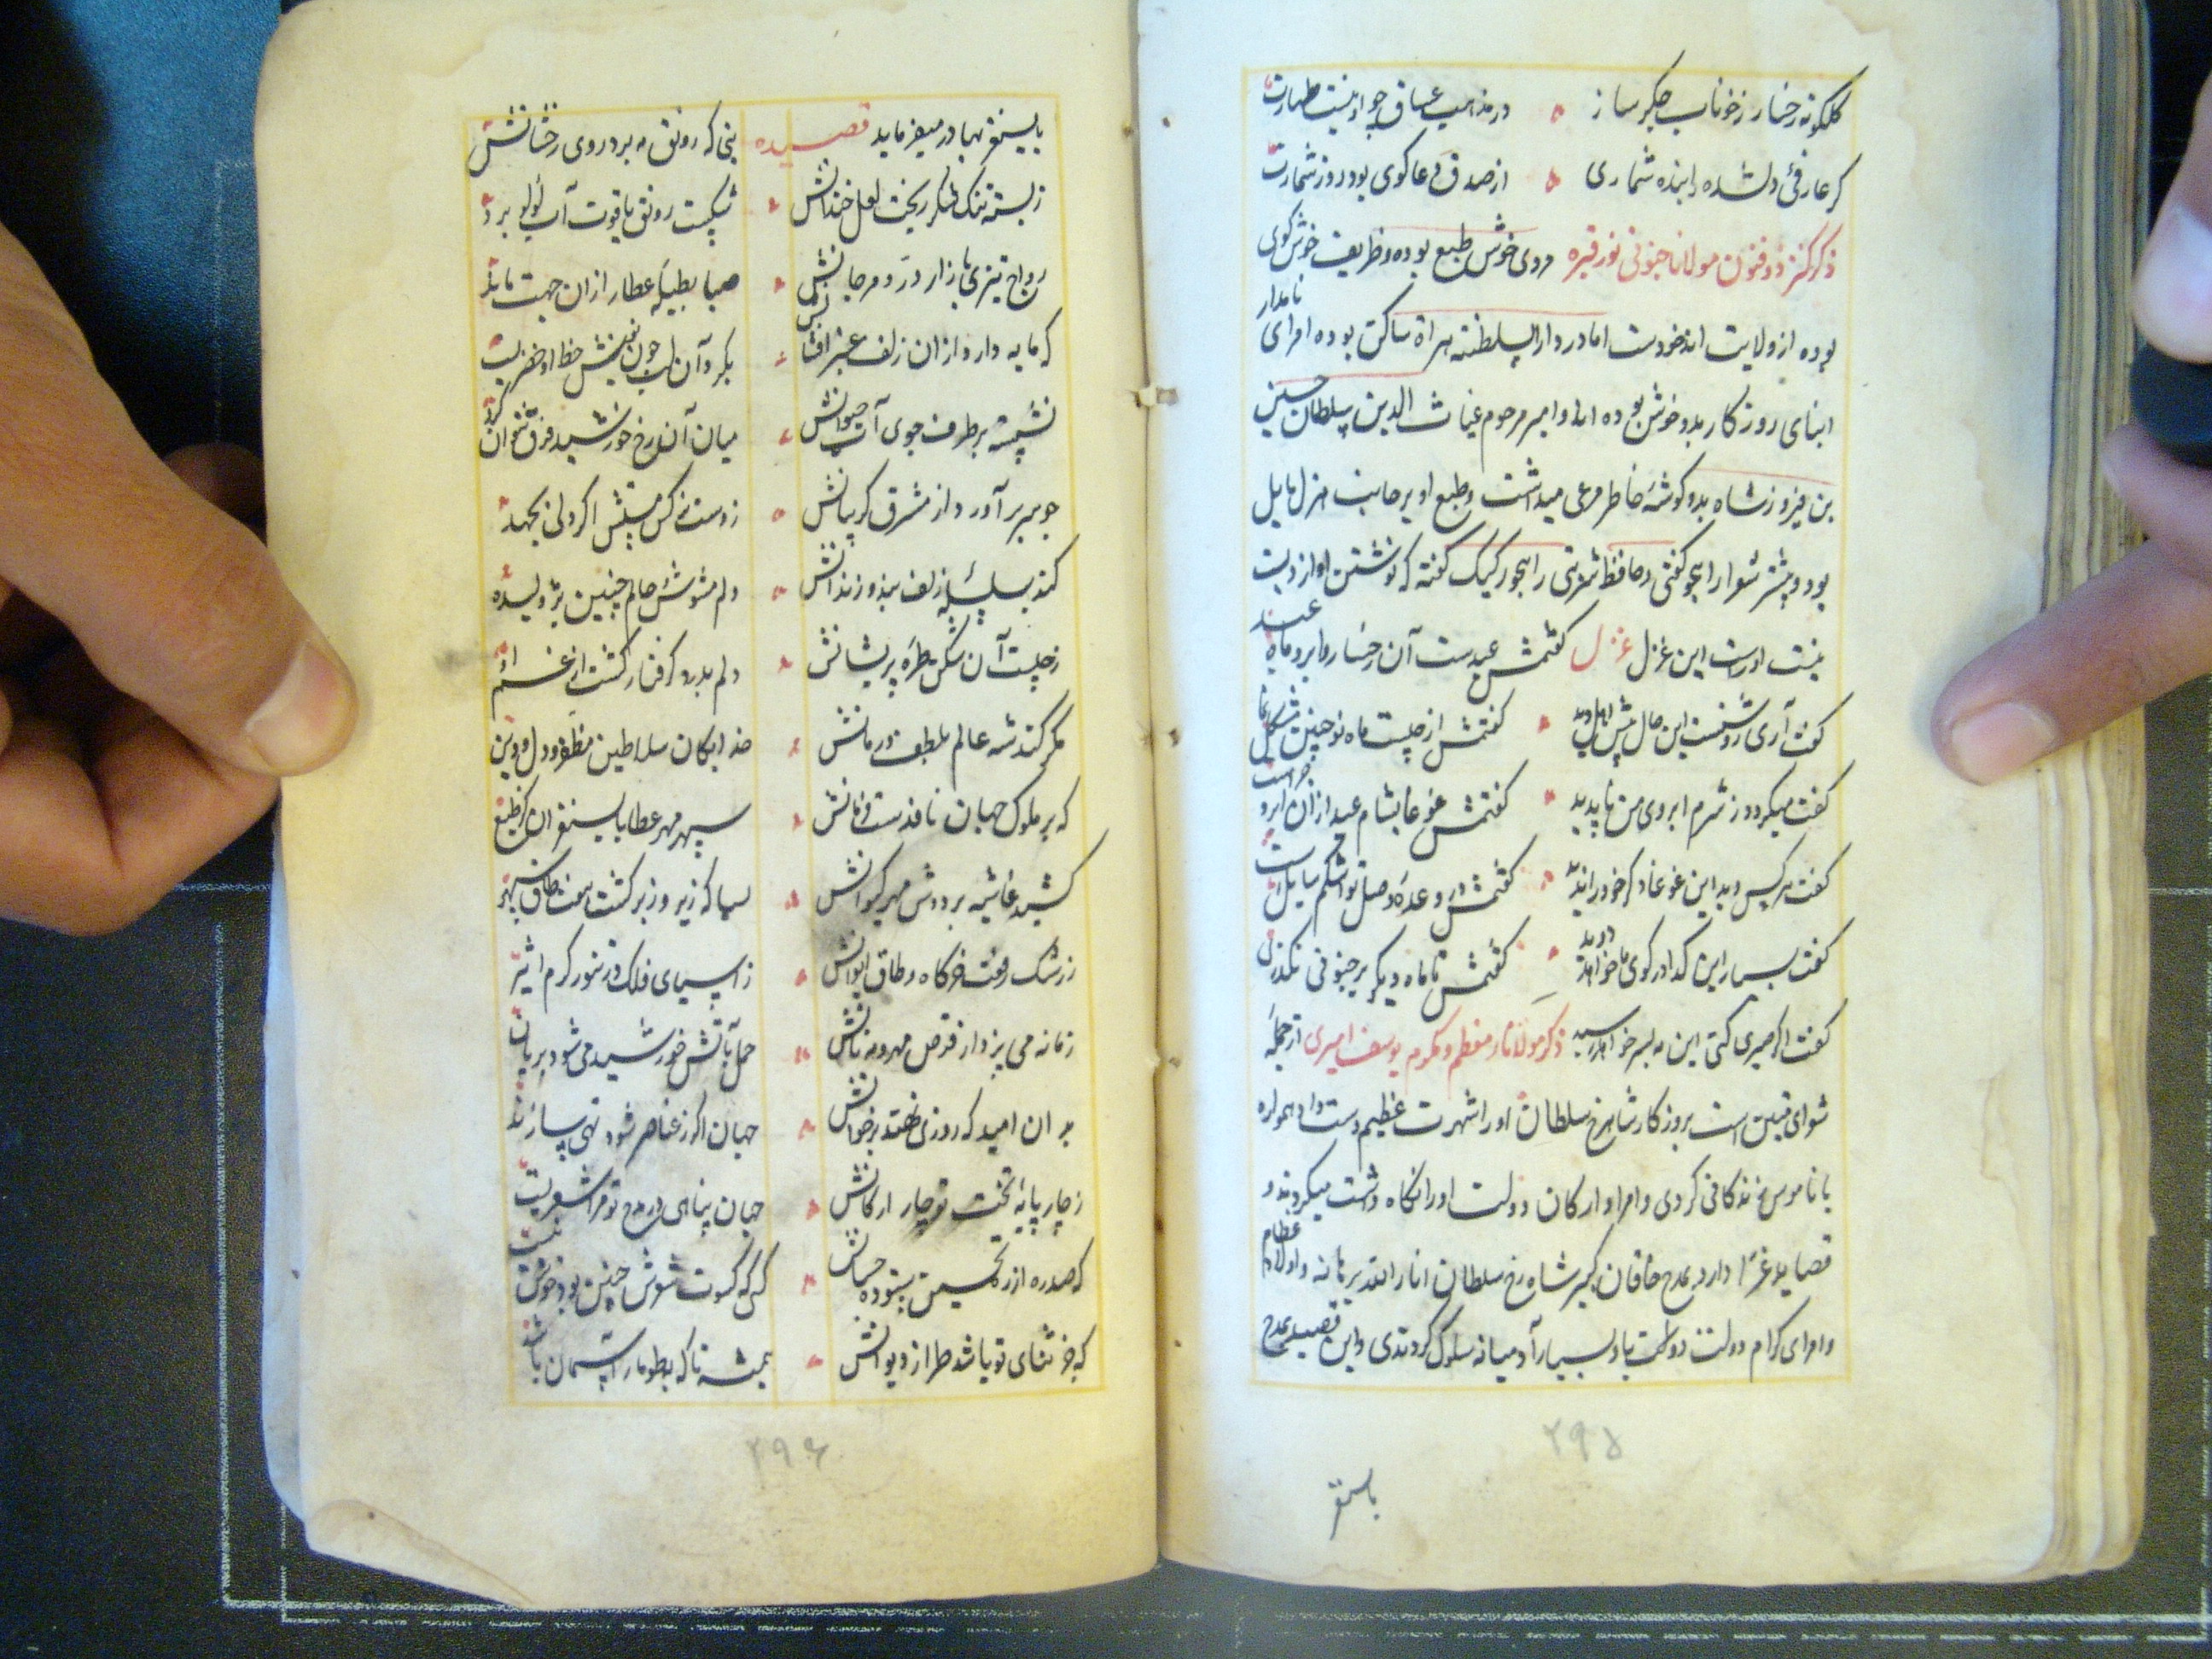 گلگونه رخسار ز خوناب جگر ساز در مذهب عشاق جو از نیست طهارت
گر عارفی دلشده را بنده شماری از صدق دعا گوی بود روز شمارت
ذکر کنز ذوفنون مولانا جنونی نور قبره مردی خوش طبع بوده و ظریف خوش گوی
بوده از ولایت اندخودست اما در دار السلطنه هراة ساکن بوده امرای نامدار
ابنای روزگار بدو خوش بوده اند و امیر مرحوم غیاث الدین سلطان حسین
بن فیروزشاه بدو گوشهٔ خاطر مرعی میداشت و طبع او بر جانب هزل مایل
بود و بیشتر شعرا را هجو گفتی و حافظ شربتی را هجو رکیک گفته که نوشتن او از ادب
نیست او راست این غزل غزل گفتمش عیدست آن رخسار و ابرو ماه عید
گفت آری روشنست این حال پیش اهل دید گفتمش از چیست ماه نو چنین مشکل نما
گفت میگردد ز شرم ابروی من ناپدید گفتمش غوغا بشام عید از آن ابرو چراست
گفت هر کس دید این غوغا دگر خود را ندید گفتمش در وعدهٔ وصل تو اشکم سایل است
گفت بسیار این گدا در کوی ما خواهد دوید گفتمش تا ماه دیگر بر جنونی نگذری
گفت اگر صبری کنی این مه بسر خواهد رسید ذکر مولانا معظم و مکرم یوسف امیری از جمله
شعرای متین است بروزگار شاهرخ سلطان او را شهرت عظیم دست داد همواره
با ناموس زندگانی کردی و امرا و ارکان دولت او را نگاه داشت میکردند و
قصاید غرّا دارد بمدح خاقان کبیر شاه رخ سلطان انار الله برهانه و اولاد عظام
و امرای کرام دولت و با او بسیار آدمیانه سلوک کردندی و این قصیده بمدح
۲۹۵
بایسنغر
بایسنغر بهادر میفرماید قصیده بتی که رونق مه برد روی رخشانش
ز پسته تنگ شکر ریخت لعل خندانش شکست رونق یاقوت و آب لولو برد
رواج تیزی بازار درّ و مرجانش صبا بطبلهٔ عطار از آن جهت ماند
که مایه دارد از آن زلف عنبر افشانش بگرد آن لب چون نقش خط او خضریست
نشسته بر طرف جوی آب حیوانش میان آن رخ و خورشید فرق نتوان کرد
چو سر برآورد از مشرق گریبانش ز دست نرگس مستش اگر دلی بجهد
کند بسلسلهٔ زلف بند و زندانش دلم مشوش و حالم چنین بژولیده
ز چیست آن شکن طرهٔ پریشانش دلم بدرد گرفتار گشت از غم او
مگر کند شه عالم بلطف درمانش خدایگان سلاطین مظفر دول و دین
که بر ملوک جهان نافذست فرمانش سپهر مهر عطا بایسنغر آن کز طبع
کشید غاشیه بر دوش مهر کیوانش بسا که زیر و زبر گشت هفت طاق سپهر
ز رشک رفعت خرگاه و طاق ایوانش ز آسیای فلک در تنور گرم اثیر
زمانه می پزد از قرص مهر و مه نانش حمل بآتش خورشید می شود بریان
بدان امید که روزی نهند بر خوانش جهان اگر ز عناصر شود تهی سازند
ز چار پایهٔ تخت تو چار ارکانش جهان پناهی در مدح تو مرا شعریست
که صد ره از ره تحسین ستوده حسانش کسی که کسوت شعرش چنین بود خوش نیست
که جز ثنای تو باشد طراز دیوانش همیشه تا که بطومار آسمان باشد
۲۹۶